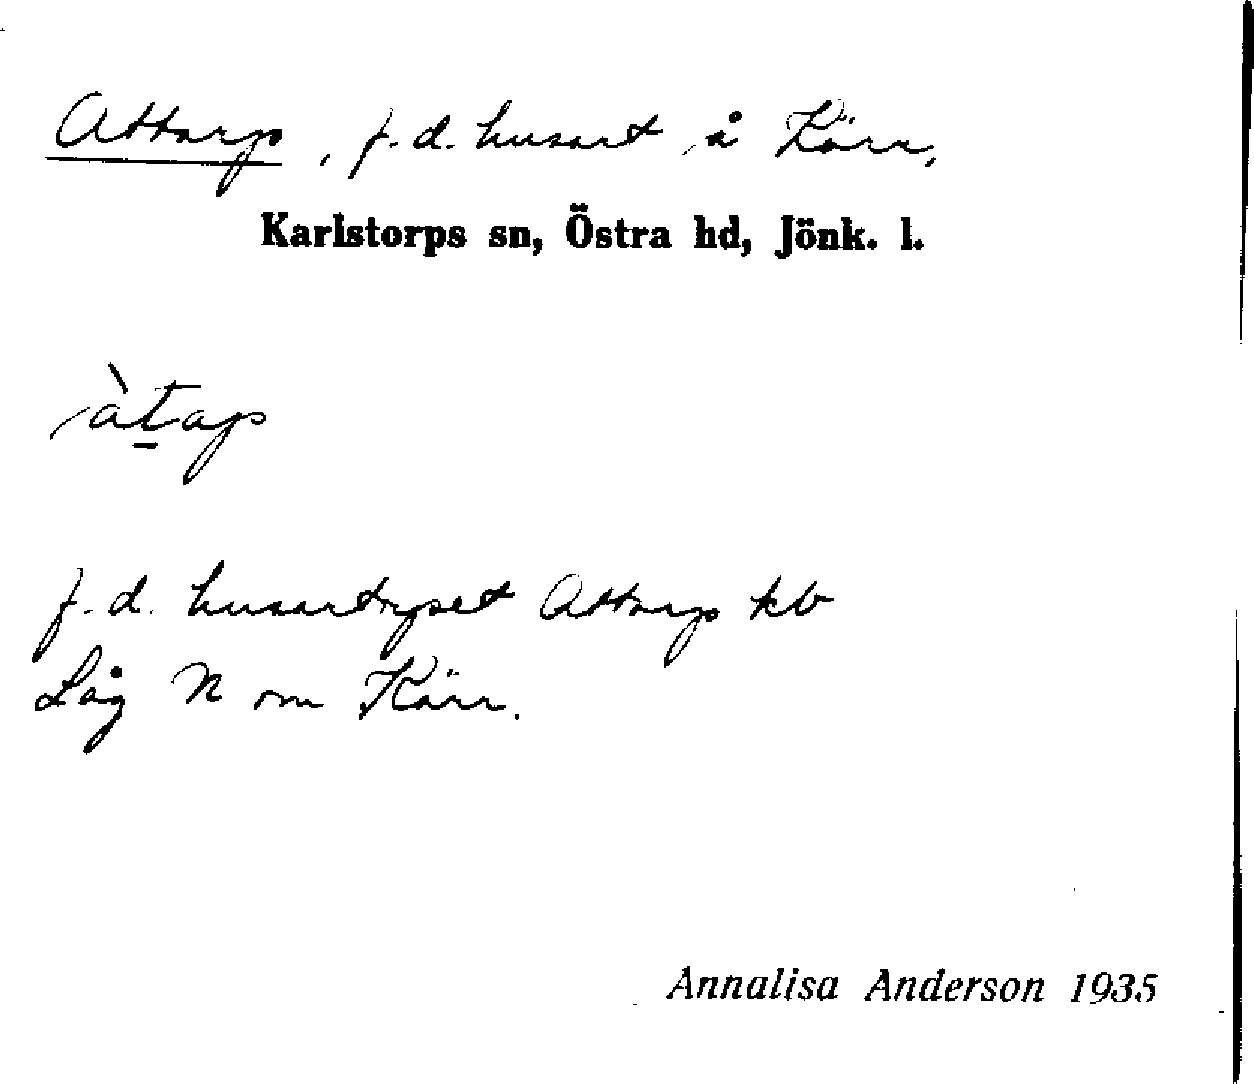 Attorp, f.d. husart å Kärr,
Karlstorps sn, Östra hd, Jönk. l.
àtap
f.d. husartorpet Attorp kb
Låg N om Kärr.
Annalisa Anderson 1935